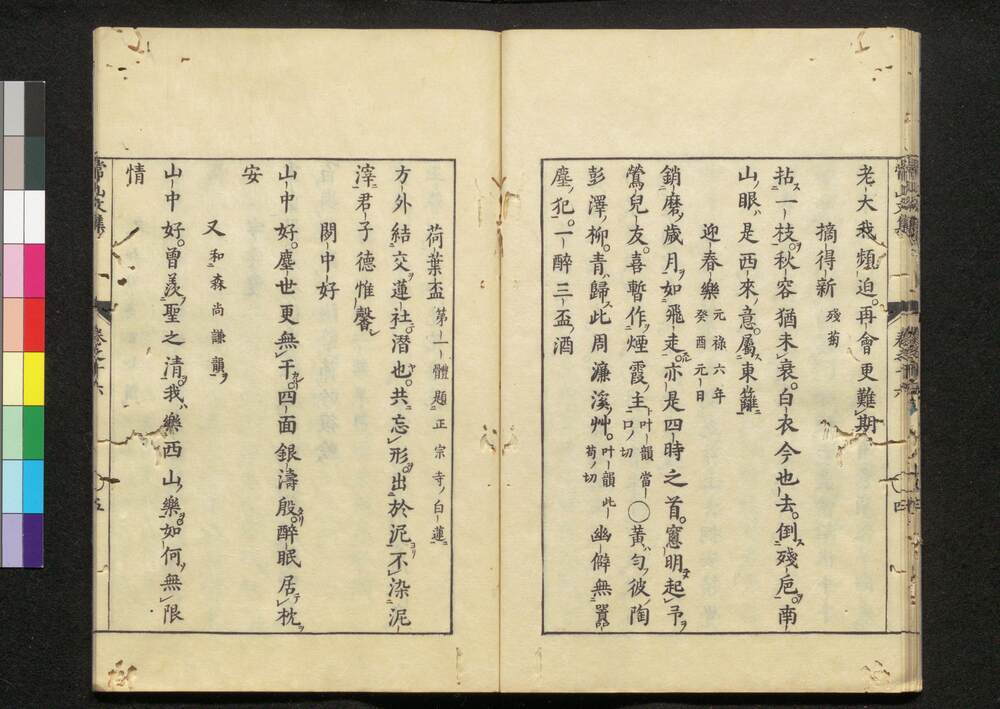 老大哉頻迫。再會更難期
摘得新 殘菊
拈一枝。秋容猶未衰。白衣今也去。倒殘巵。南
山眼。是西來意。屬東籬
迎春樂 元祿六年
癸酉元日
銷磨歲月如飛走。亦是四時之首。窻明起予
鶯兒友。喜暫作煙霞主 叶韻當
口ノ切 ○黃勻彼陶
彭澤柳。青歸此周濂溪艸。叶韻此
苟ノ切 幽僻無囂
塵犯。一醉三盃酒
常山文集 卷之十六 四
荷葉盃 第一體題正宗寺ノ白蓮
方外結交蓮社。潛也。共忘形。出於泥不染泥
滓君子德惟馨
閑中好
山中好。塵世更無干。四面銀濤殷。醉眠居枕
安
又 和森尚謙韻
山中好。曾羨聖之清。我樂西山樂如何無限
情
常山文集 卷之十六 五